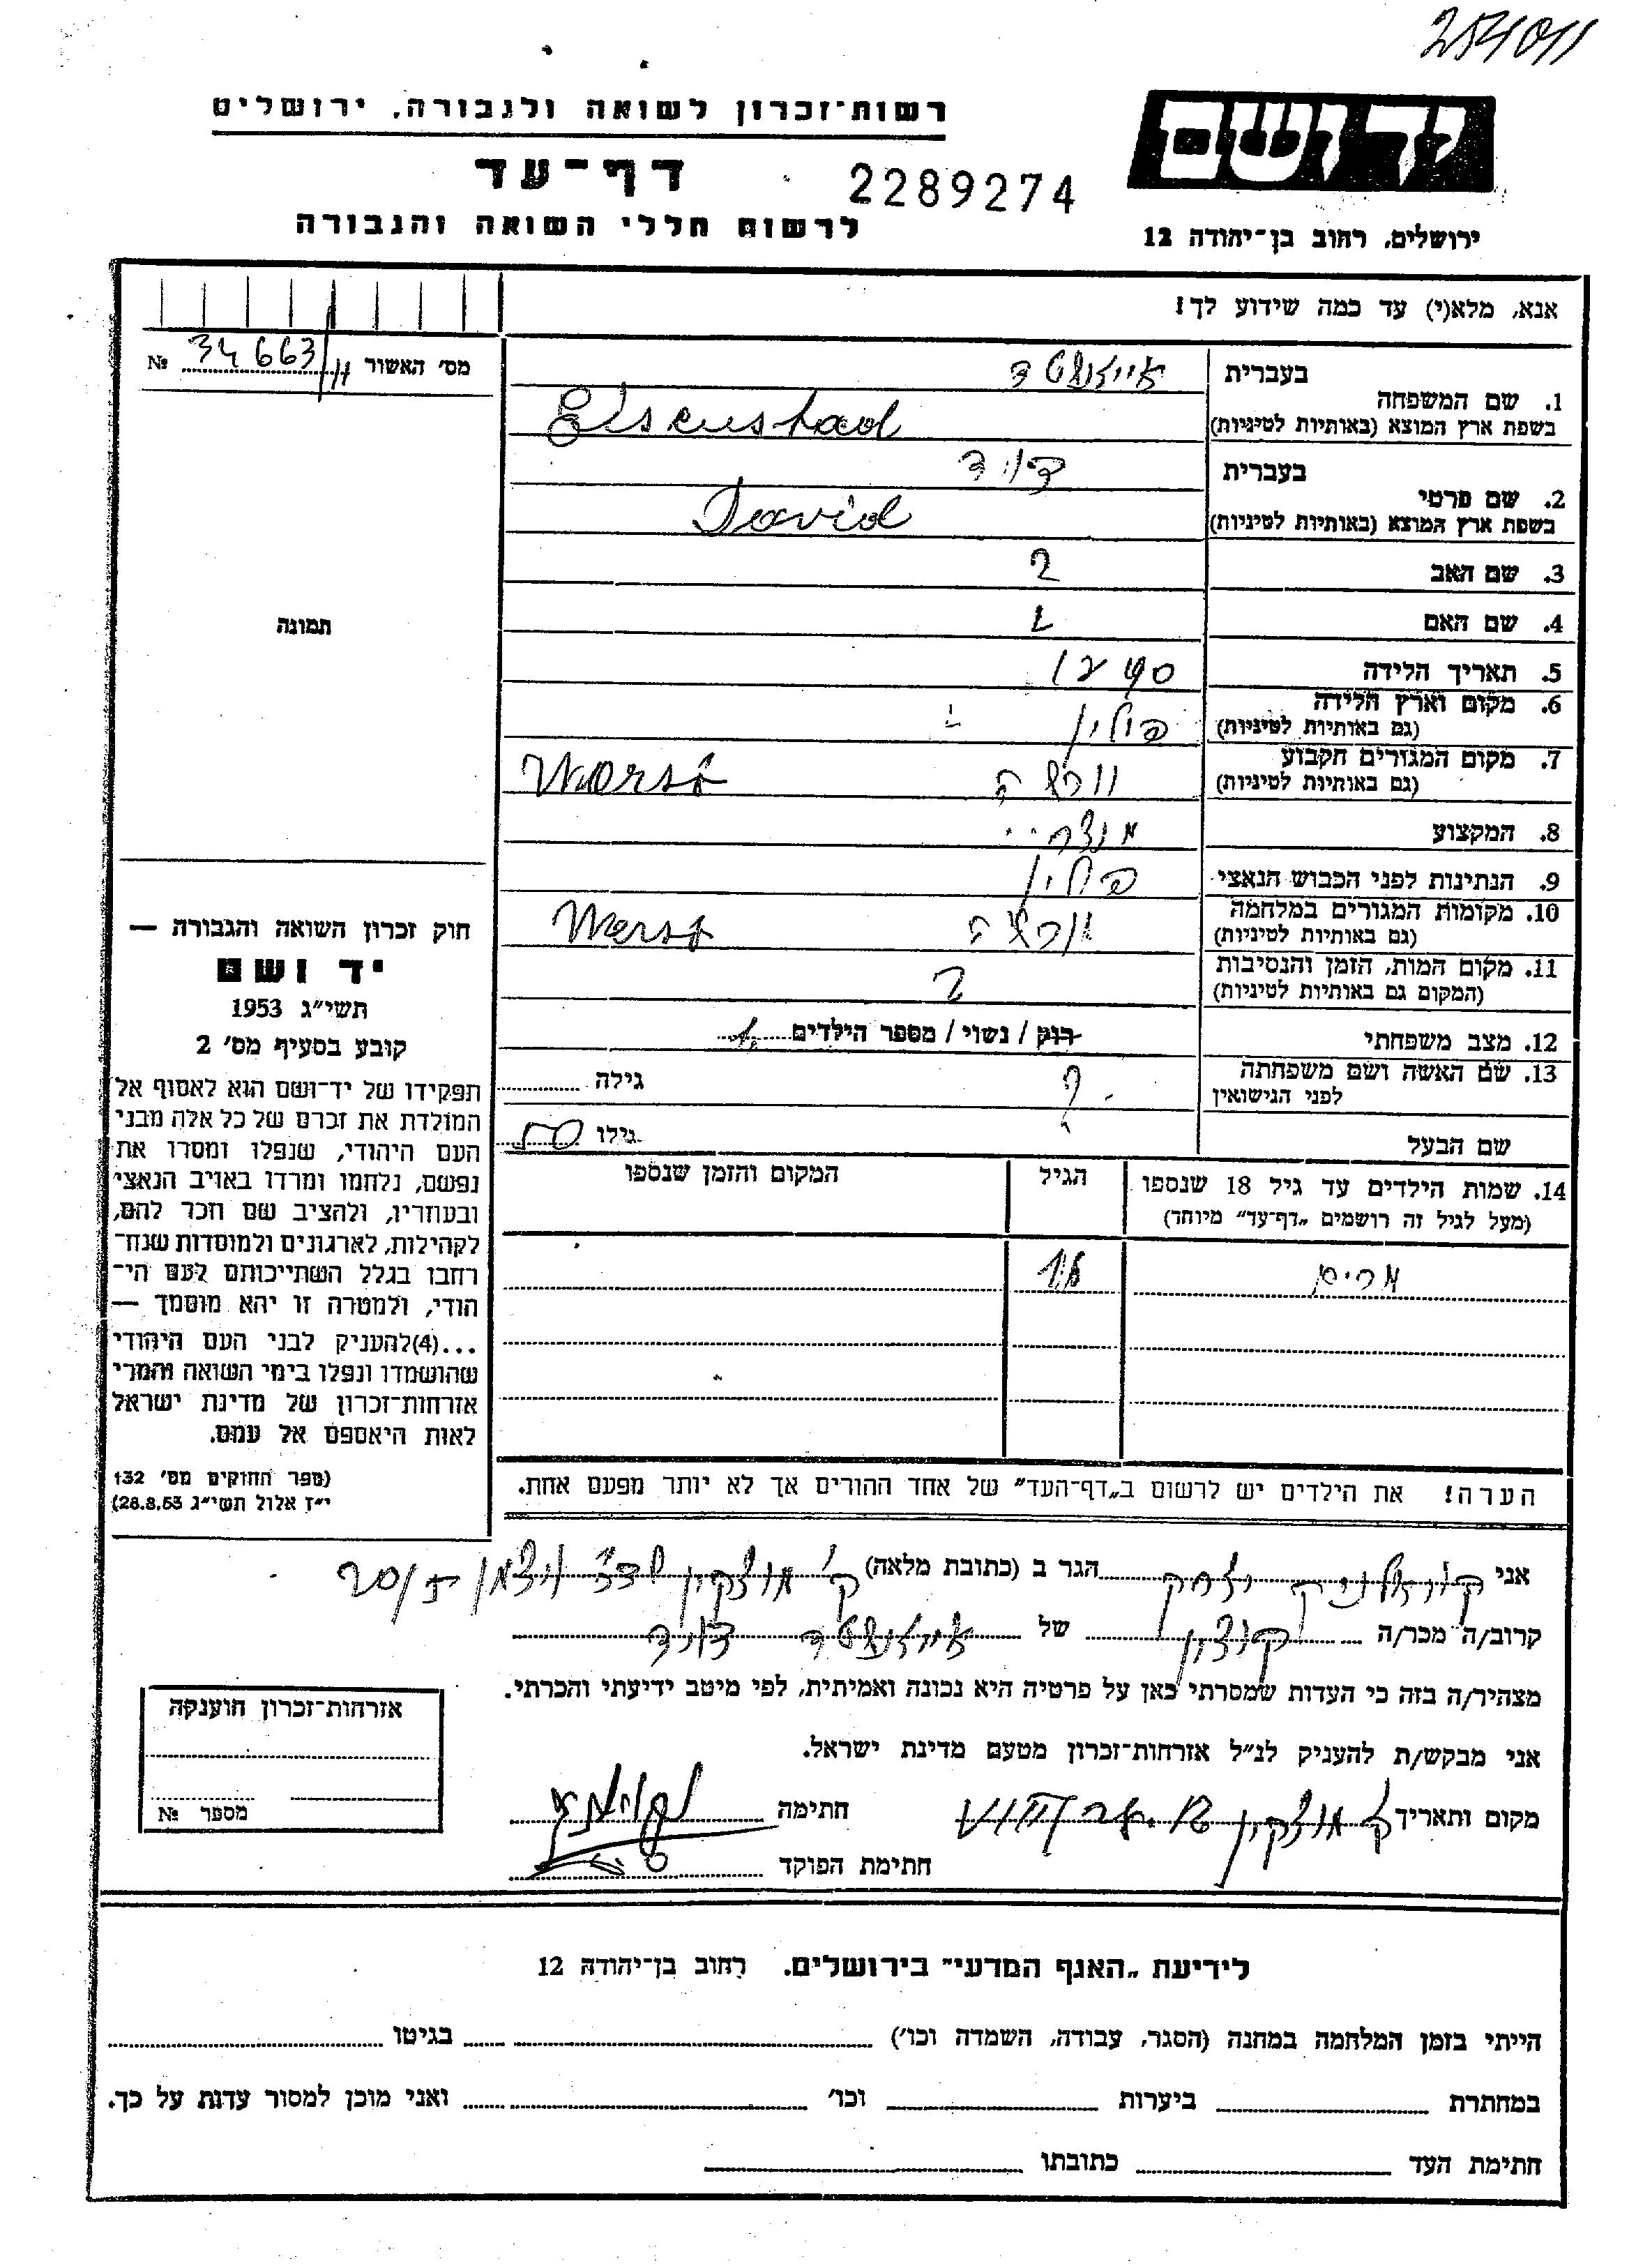 254011
רשות־זכרון לשואה ולגבורה, ירושלים
יד ושם
דף־עד
2289274
לרשום חללי השואה והגבורה
ירושלים, רחוב בן־יהודה 12
אנא, מלא(י) עד כמה שידוע לך!
מס׳ האשור 34663 №
1. שם המשפחה בעברית אייזנשטד
בשפת ארץ המוצא (באותיות לטיניות) Eisenstad
2. שם פרטי בעברית דוד
בשפת ארץ המוצא (באותיות לטיניות) David
3. שם האב ?
4. שם האם
5. תאריך הלידה
6. מקום וארץ הלידה פולין
(גם באותיות לטיניות)
7. מקום המגורים הקבוע ורשה
(גם באותיות לטיניות) Worsó
8. המקצוע
9. הנתינות לפני הכבוש הנאצי פולין
10. מקומות המגורים במלחמה ורשה
(גם באותיות לטיניות) Wersó
11. מקום המות, הזמן והנסיבות ?
(המקום גם באותיות לטיניות)
12. מצב משפחתי רוק / נשוי / מספר הילדים 1
13. שם האשה ושם משפחתה ? גילה
לפני הנישואין
שם הבעל גילו 50
14. שמות הילדים עד גיל 18 שנספו הגיל המקום והזמן שנספו
(מעל לגיל זה רושמים „דף־עד” מיוחד)
מרים
הערה! את הילדים יש לרשום ב„דף־העד” של אחד ההורים אך לא יותר מפעם אחת.
תמונה
חוק זכרון השואה והגבורה —
יד ושם
תשי״ג 1953
קובע בסעיף מס׳ 2
תפקידו של יד־ושם הוא לאסוף אל
המולדת את זכרם של כל אלה מבני
העם היהודי, שנפלו ומסרו את
נפשם, נלחמו ומרדו באויב הנאצי
ובעוזריו, ולהציב שם וזכר להם,
לקהילות, לארגונים ולמוסדות שנח־
רחבו בגלל השתייכותם לעם הי־
הודי, ולמטרה זו יהא מוסמך —
...(4)להעניק לבני העם היהודי
שהושמדו ונפלו בימי השואה והמרי
אזרחות־זכרון של מדינת ישראל
לאות היאספם אל עמם.
(ספר החוקים מס׳ 132
י״ז אלול תשי״ג 28.8.53)
אני יצחק הגר ב (כתובת מלאה) ק׳ מוצקין שד׳ ויצמן
קרוב/ה מכר/ה של אייזנשטד דוד
מצהיר/ה בזה כי העדות שמסרתי כאן על פרטיה היא נכונה ואמיתית, לפי מיטב ידיעתי והכרתי.
אני מבקש/ת להעניק לנ״ל אזרחות־זכרון מטעם מדינת ישראל.
מקום ותאריך ק׳ מוצקין חתימה
חתימת הפוקד
אזרחות־זכרון הוענקה
מספר №
לידיעת „האגף המדעי” בירושלים. רחוב בן־יהודה 12
הייתי בזמן המלחמה במחנה (הסגר, עבודה, השמדה וכו׳) בגיטו
במחתרת ביערות וכו׳ ואני מוכן למסור עדות על כך.
חתימת העד כתובתו